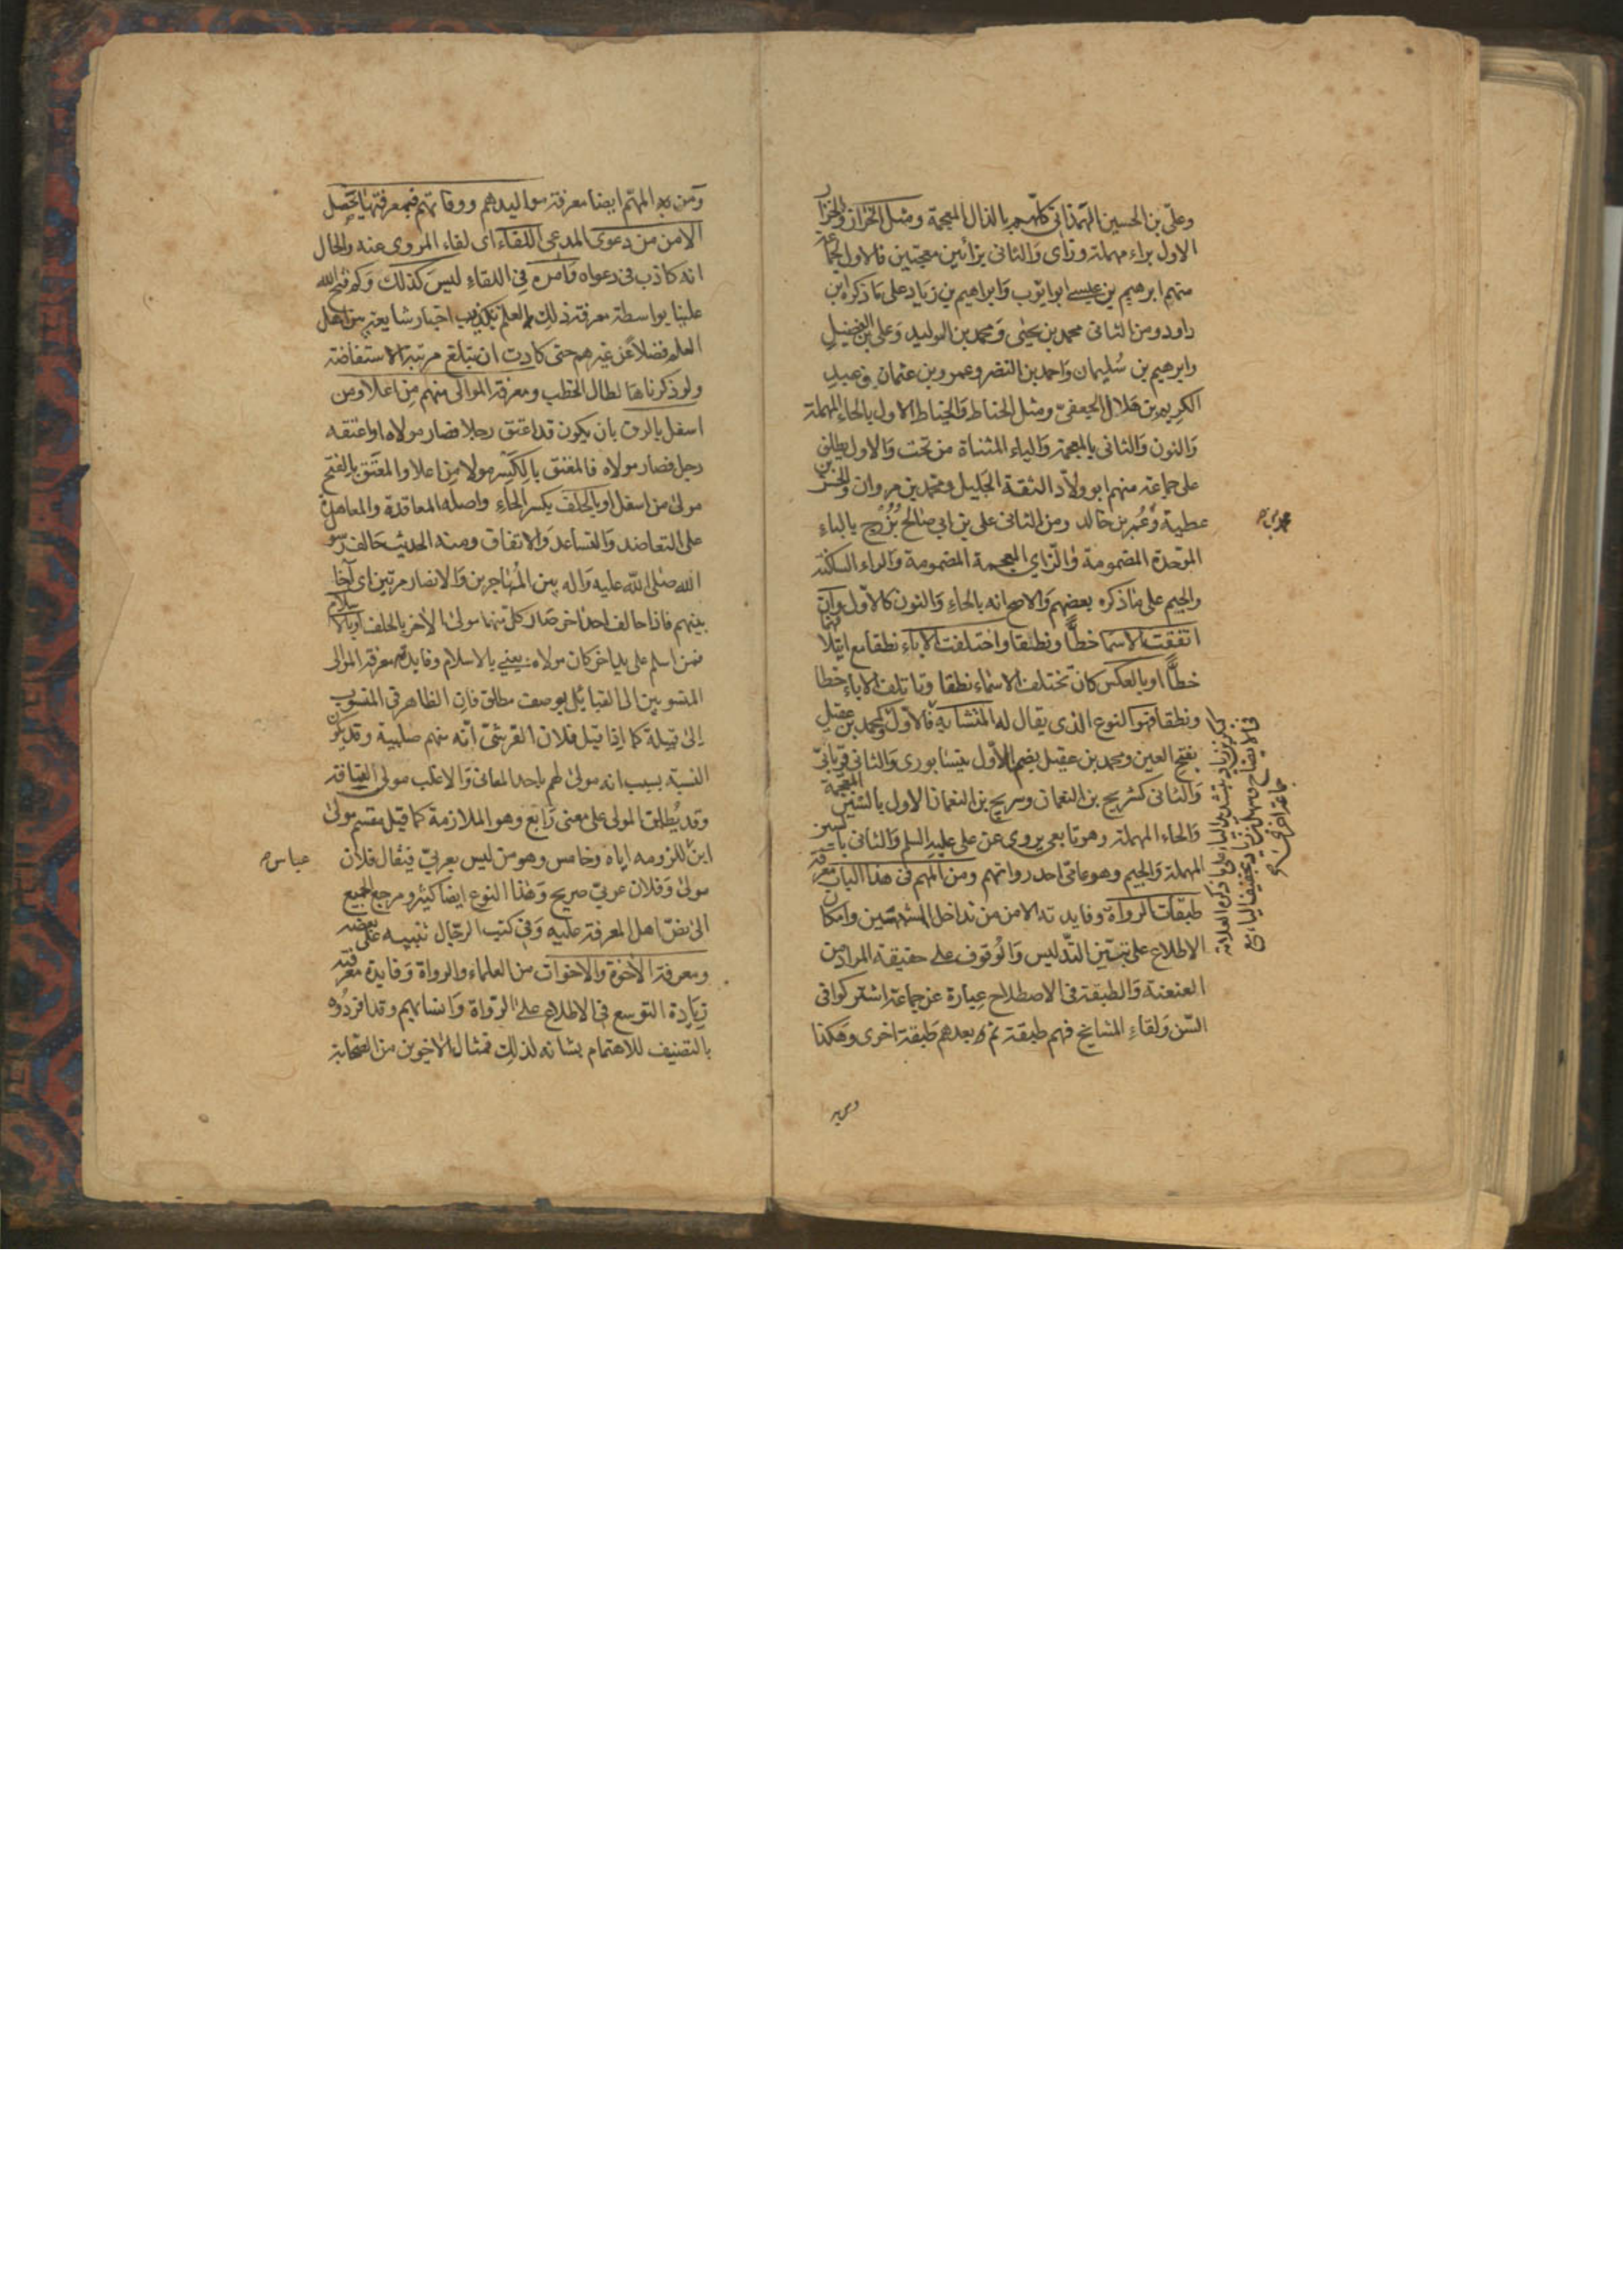 وعلي بن الحسين الهمذاني كلهم بالذال المعجمة ومثل الخراز والخزاز
الاول براء مهملة وزاى والثانى بزائين معجمتين فالاول لجماعة
منهم ابرهيم بن عيسى ابو ايوب وابراهيم بن زياد على ما ذكره ابن
داود ومن الثانى محمد بن يحيى ومحمد بن الوليد وعلى بن الفضيل
وابرهيم بن سليمان واحمد بن النضر وعمرو بن عثمان وعبد
الكريم بن هلال الجعفي ومثل الحناط والخياط الاول بالحاء المهملة
والنون والثانى بالمعجمة والياء المثناة من تحت والاول يطلق
على جماعة منهم ابو ولاد الثقة الجليل ومحمد بن مروان والحسن بن
عطية وعمر بن خالد ومن الثانى على بن ابي صالح بُزُرْج بالباء
الموحدة المضمومة والزاي المعجمة المضمومة والراء الساكنة
والجيم على ما ذكره بعضهم والاصح انه بالحاء والنون كالاول وان
اتفقت الاسما خطاً ونطقا واختلفت الاباء نطقا مع ايتلافها
خطاً او بالعكس كان تختلف الاسماء نطقا وتاتلف الاباء خطا
ونطقا فهو النوع الذى يقال له المتشابه فالاول كمحمد بن عقيل
بفتح العين ومحمد بن عقيل بضم الاول نيسابورى والثانى فريابي
والثانى كشريح بن النعمان وسريج بن النعمان الاول بالشين المعجمة
والحاء المهملة وهو تابعى يروى عن على عليه السلم والثانى بالسين
المهملة والجيم وهو عامى احد رواتهم ومن المهم فى هذا الباب معرفة
طبقات الرواة وفايدته الامن من تداخل المشتبهين وامكان
الاطلاع على تبيّن التدليس والوقوف على حقيقة المراد من
العنعنة والطبقة فى الاصطلاح عبارة عن جماعة اشتركوا فى
السن ولقاء المشايخ فهم طبقة ثم بعدهم طبقة اخرى وهكذا
ومن المهم ايضا معرفة مواليدهم ووفاتهم فبمعرفتها يحصل
الامن من دعوى المدعى اللقاء اى لقاء المروى عنه والحال
انه كاذب فى دعواه وامره في اللقاء ليس كذلك وكم فتح الله
علينا بواسطة معرفة ذلك العلم بكذب اخبار شايعة بين اهل
العلم فضلا عن غيرهم حتى كادت ان تبلغ مرتبة الاستفاضة
ولو ذكرناها لطال الخطب ومعرفة الموالى منهم من اعلا ومن
اسفل بالرق بان يكون قد اعتق رجلا فصار مولاه او اعتقه
رجل فصار مولاه فالمعتق بالكسر مولا من اعلا والمعتق بالفتح
مولى من اسفل او بالحلف بكسر الحاء واصله المعاقدة والمعاهدة
على التعاضد والتساعد والاتفاق ومنه الحديث حالف رسو
الله صلى الله عليه واله بين المهاجرين والانصار مرتين اى آخا
بينهم فاذا حالف احد اخر صار كل منهما مولى الاخر بالحلف او بالاسلام
فمن اسلم على يد اخر كان مولاه يعني بالاسلام وفايدة معرفة الموالى
المنسوبين الى القبايل بوصف مطلق فان الظاهر في المنسوب
الى قبيلة كما اذا قيل فلان القرشي انه منهم صلبية وقد يكون
النسبة بسبب انه مولى لهم باحد المعانى والاغلب مولى العتاقة
وقد يُطلق المولى على معنى رابع وهو الملازمة كما قيل مقسم مولى
ابن للزومه اياه وخامس وهو من ليس بعربي فيقال فلان
عباس صح
مولى وفلان عربي صريح وهذا النوع ايضا كثير ومرجع الجميع
الى نص اهل المعرفة عليه وفي كتب الرجال تنبيه على بعضه
ومعرفة الاخوة والاخوات من العلماء والرواة وفايدة معرفته
زيادة التوسع في الاطلاع على الرواة وانسابهم وقد افردوه
بالتصنيف للاهتمام بشانه لذلك فمثال الاخوين من الصحابة